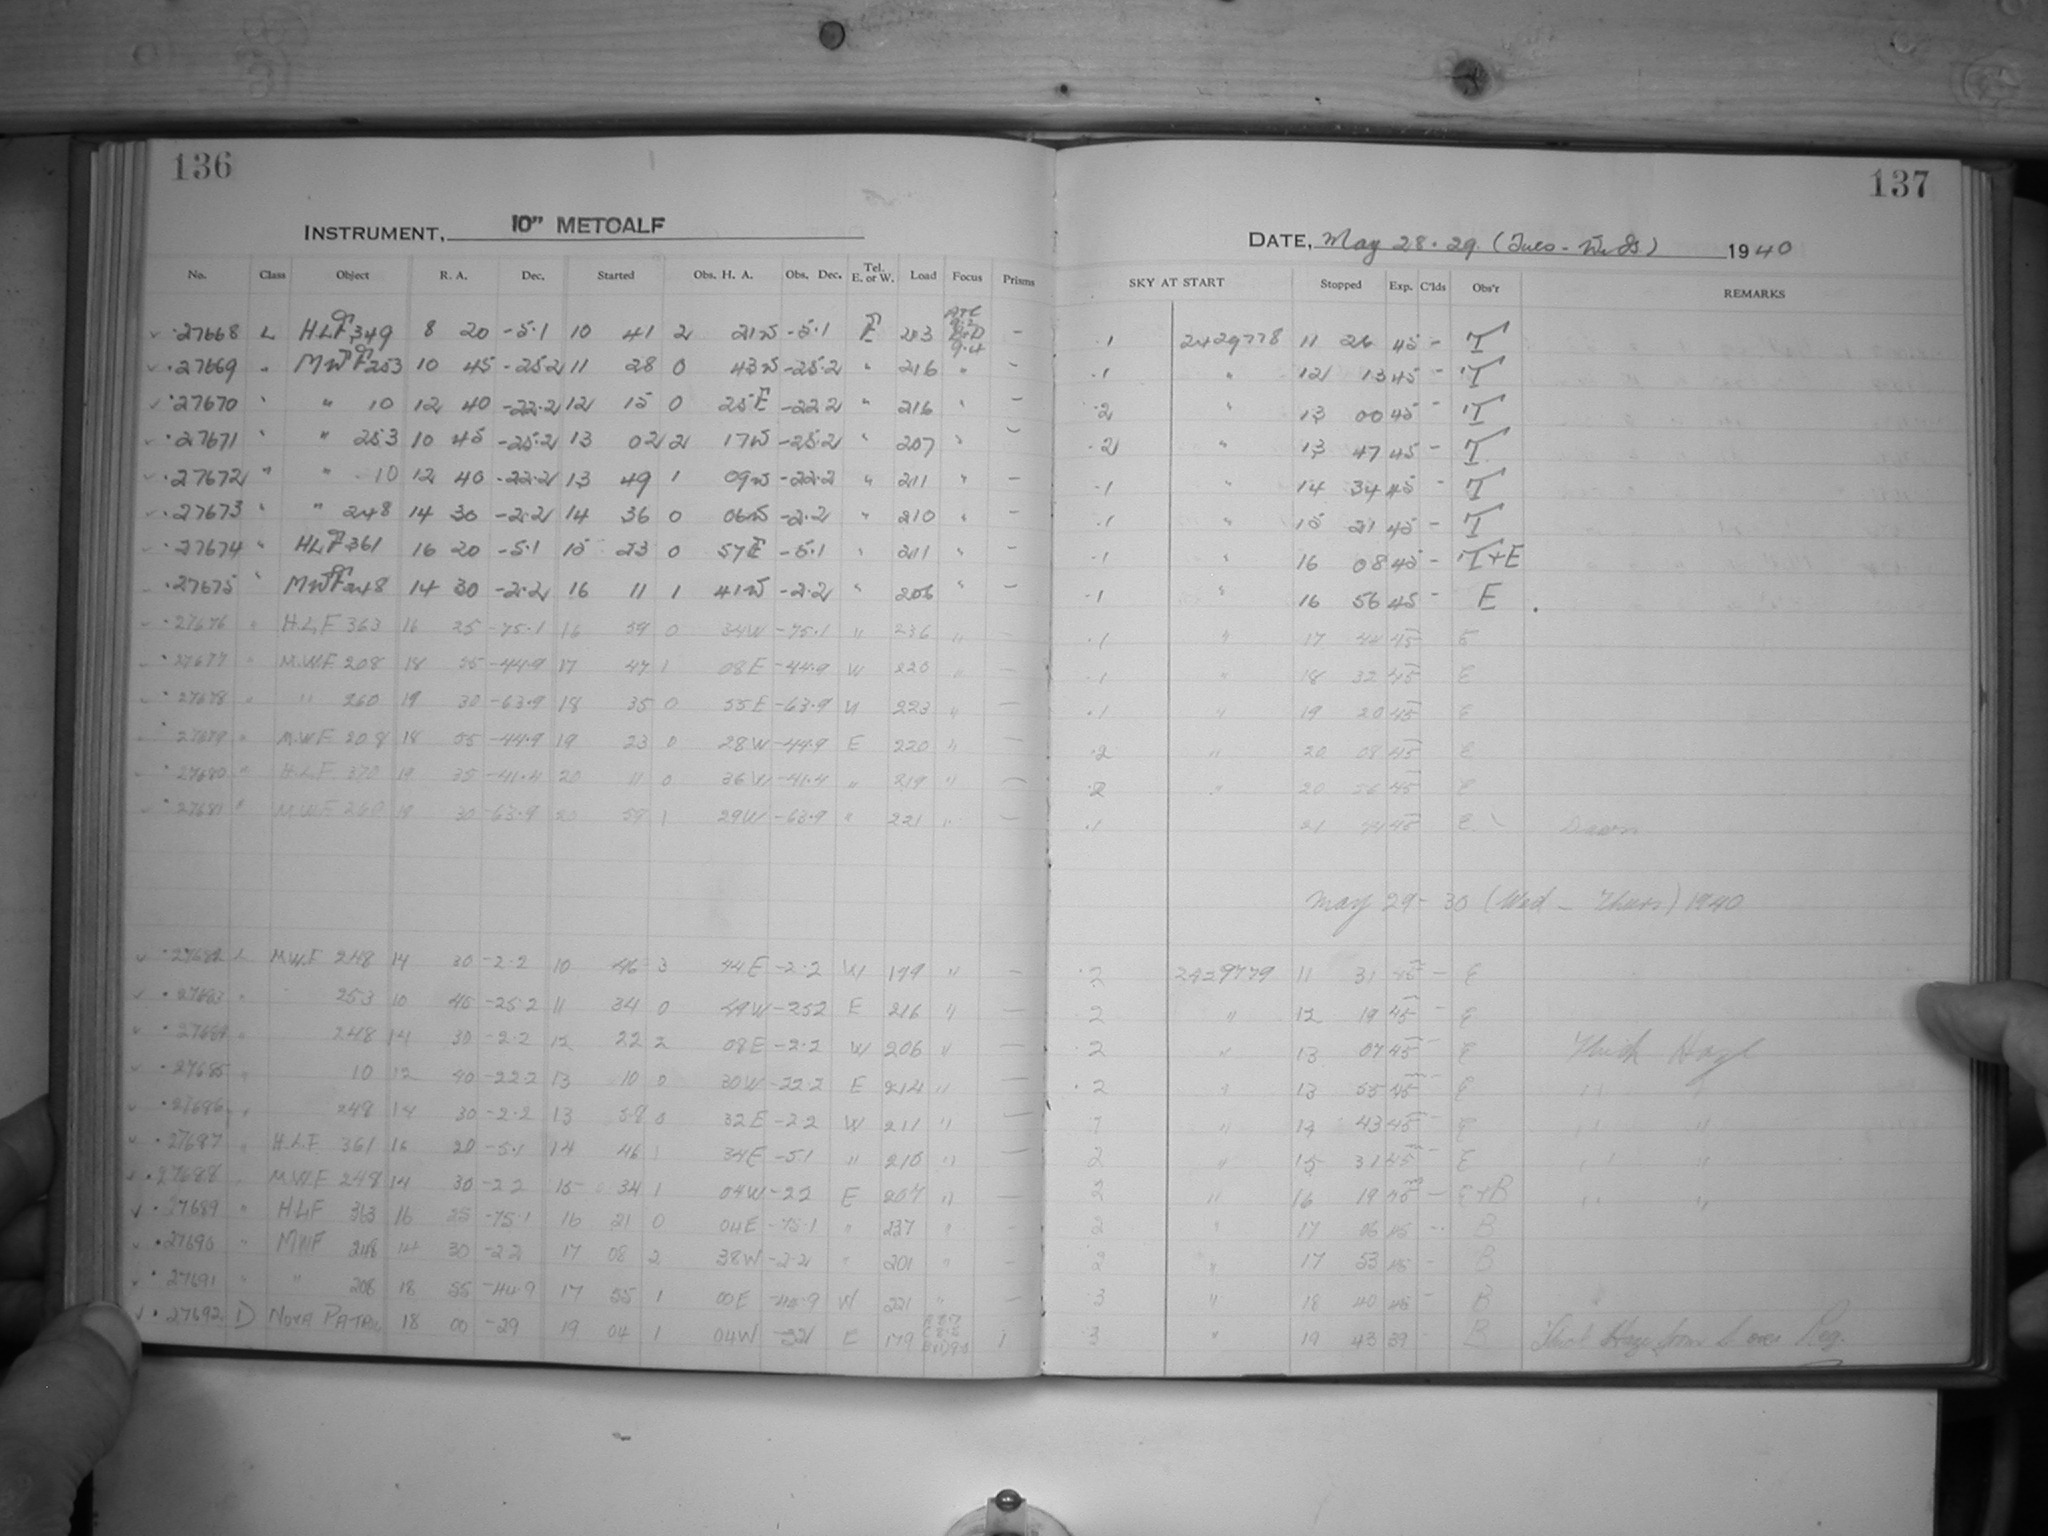 136
INSTRUMENT, 10" METCALF
No. Class Object R. A. Dec. Started Obs. H. A. Obs. Dec. Tel. E. or W. Load Focus Prisms
27668 L HLF 349 8 20 -5.1 10 41 2 21W -5.1 E 213 –
27669 " MWF 253 10 45 -25.2 11 28 0 43W -25.2 " 216 " –
27670 " " 10 12 40 -22.2 12 15 0 25E -22.2 " 216 " –
27671 " " 253 10 45 -25.2 13 02 2 17W -25.2 " 207 " –
27672 " " 10 12 40 -22.2 13 49 1 09W -22.2 " 211 " –
27673 " " 248 14 30 -2.2 14 36 0 06W -2.2 " 210 " –
27674 " HLF 361 16 20 -5.1 15 23 0 57E -5.1 " 211 " –
27675 " MWF 248 14 30 -2.2 16 11 1 41W -2.2 " 206 " –
27676 " H.L.F 363 16 25 -75.1 16 59 0 34W -75.1 " 236 " –
27677 " M.W.F. 208 18 55 -44.9 17 47 1 08E -44.9 W 220 " –
27678 " " 260 19 30 -63.9 18 35 0 55E -63.9 W 223 " –
27679 " M.W.F 208 18 55 -44.9 19 23 0 28W -44.9 E 220 " –
27680 " H.L.F. 370 19 35 -41.4 20 11 0 36W -41.4 " 219 " –
27681 " M.W.F 260 19 30 -63.9 20 59 1 29W -63.9 " 221 " –
27682 L M.W.F 248 14 30 -2.2 10 46 3 44E -2.2 W 199 " –
27683 " 253 10 45 -25.2 11 34 0 49W -25.2 E 216 " –
27684 " 248 14 30 -2.2 12 22 2 08E -2.2 W 206 " –
27685 " 10 12 40 -22.2 13 10 0 30W -22.2 E 214 " –
27686 " 248 14 30 -2.2 13 58 0 32E -2.2 W 211 " –
27687 " H.L.F 361 16 20 -5.1 14 46 1 34E -5.1 " 210 " –
27688 " M.W.F 248 14 30 -2.2 15 34 1 04W -2.2 E 207 " –
27689 " HLF 363 16 25 -75.1 16 21 0 04E -75.1 " 237 " –
27690 " MWF 248 14 30 -2.2 17 08 2 38W -2.2 " 201 " –
27691 " " 208 18 55 -44.9 17 55 1 00E -44.9 W 221 " –
27692 D NOVA PATROL 18 00 -29 19 04 1 04W E 179 1
137
DATE, May 28-29 (Tues - Weds) 1940
SKY AT START Stopped Exp. C'lds Obs'r REMARKS
.1 2429778 11 26 45 – T
.1 " 12 13 45 – T
.2 " 13 00 45 – T
.2 " 13 47 45 – T
.1 " 14 34 45 – T
.1 " 15 21 45 – T
.1 " 16 08 45 – T+E
.1 " 16 56 45 – E
.1 " 17 44 45 E
.1 " 18 32 45 E
.1 " 19 20 45 E
.2 " 20 08 45 E
.2 " 20 56 45 E
.1 21 44 45 E Dawn
May 29-30 (Wed – Thurs) 1940
.2 2429779 11 31 45 – E
.2 " 12 19 45 – E
.2 " 13 07 45 – E Thick Haze
.2 " 13 55 45 – E " "
" 14 43 45 – E " "
2 " 15 31 45 – E " "
2 " 16 19 45 – E+B " "
2 " 17 06 45 – B
2 " 17 53 45 – B
3 " 18 40 45 – B
3 " 19 43 39 – B Thick Haze from S over